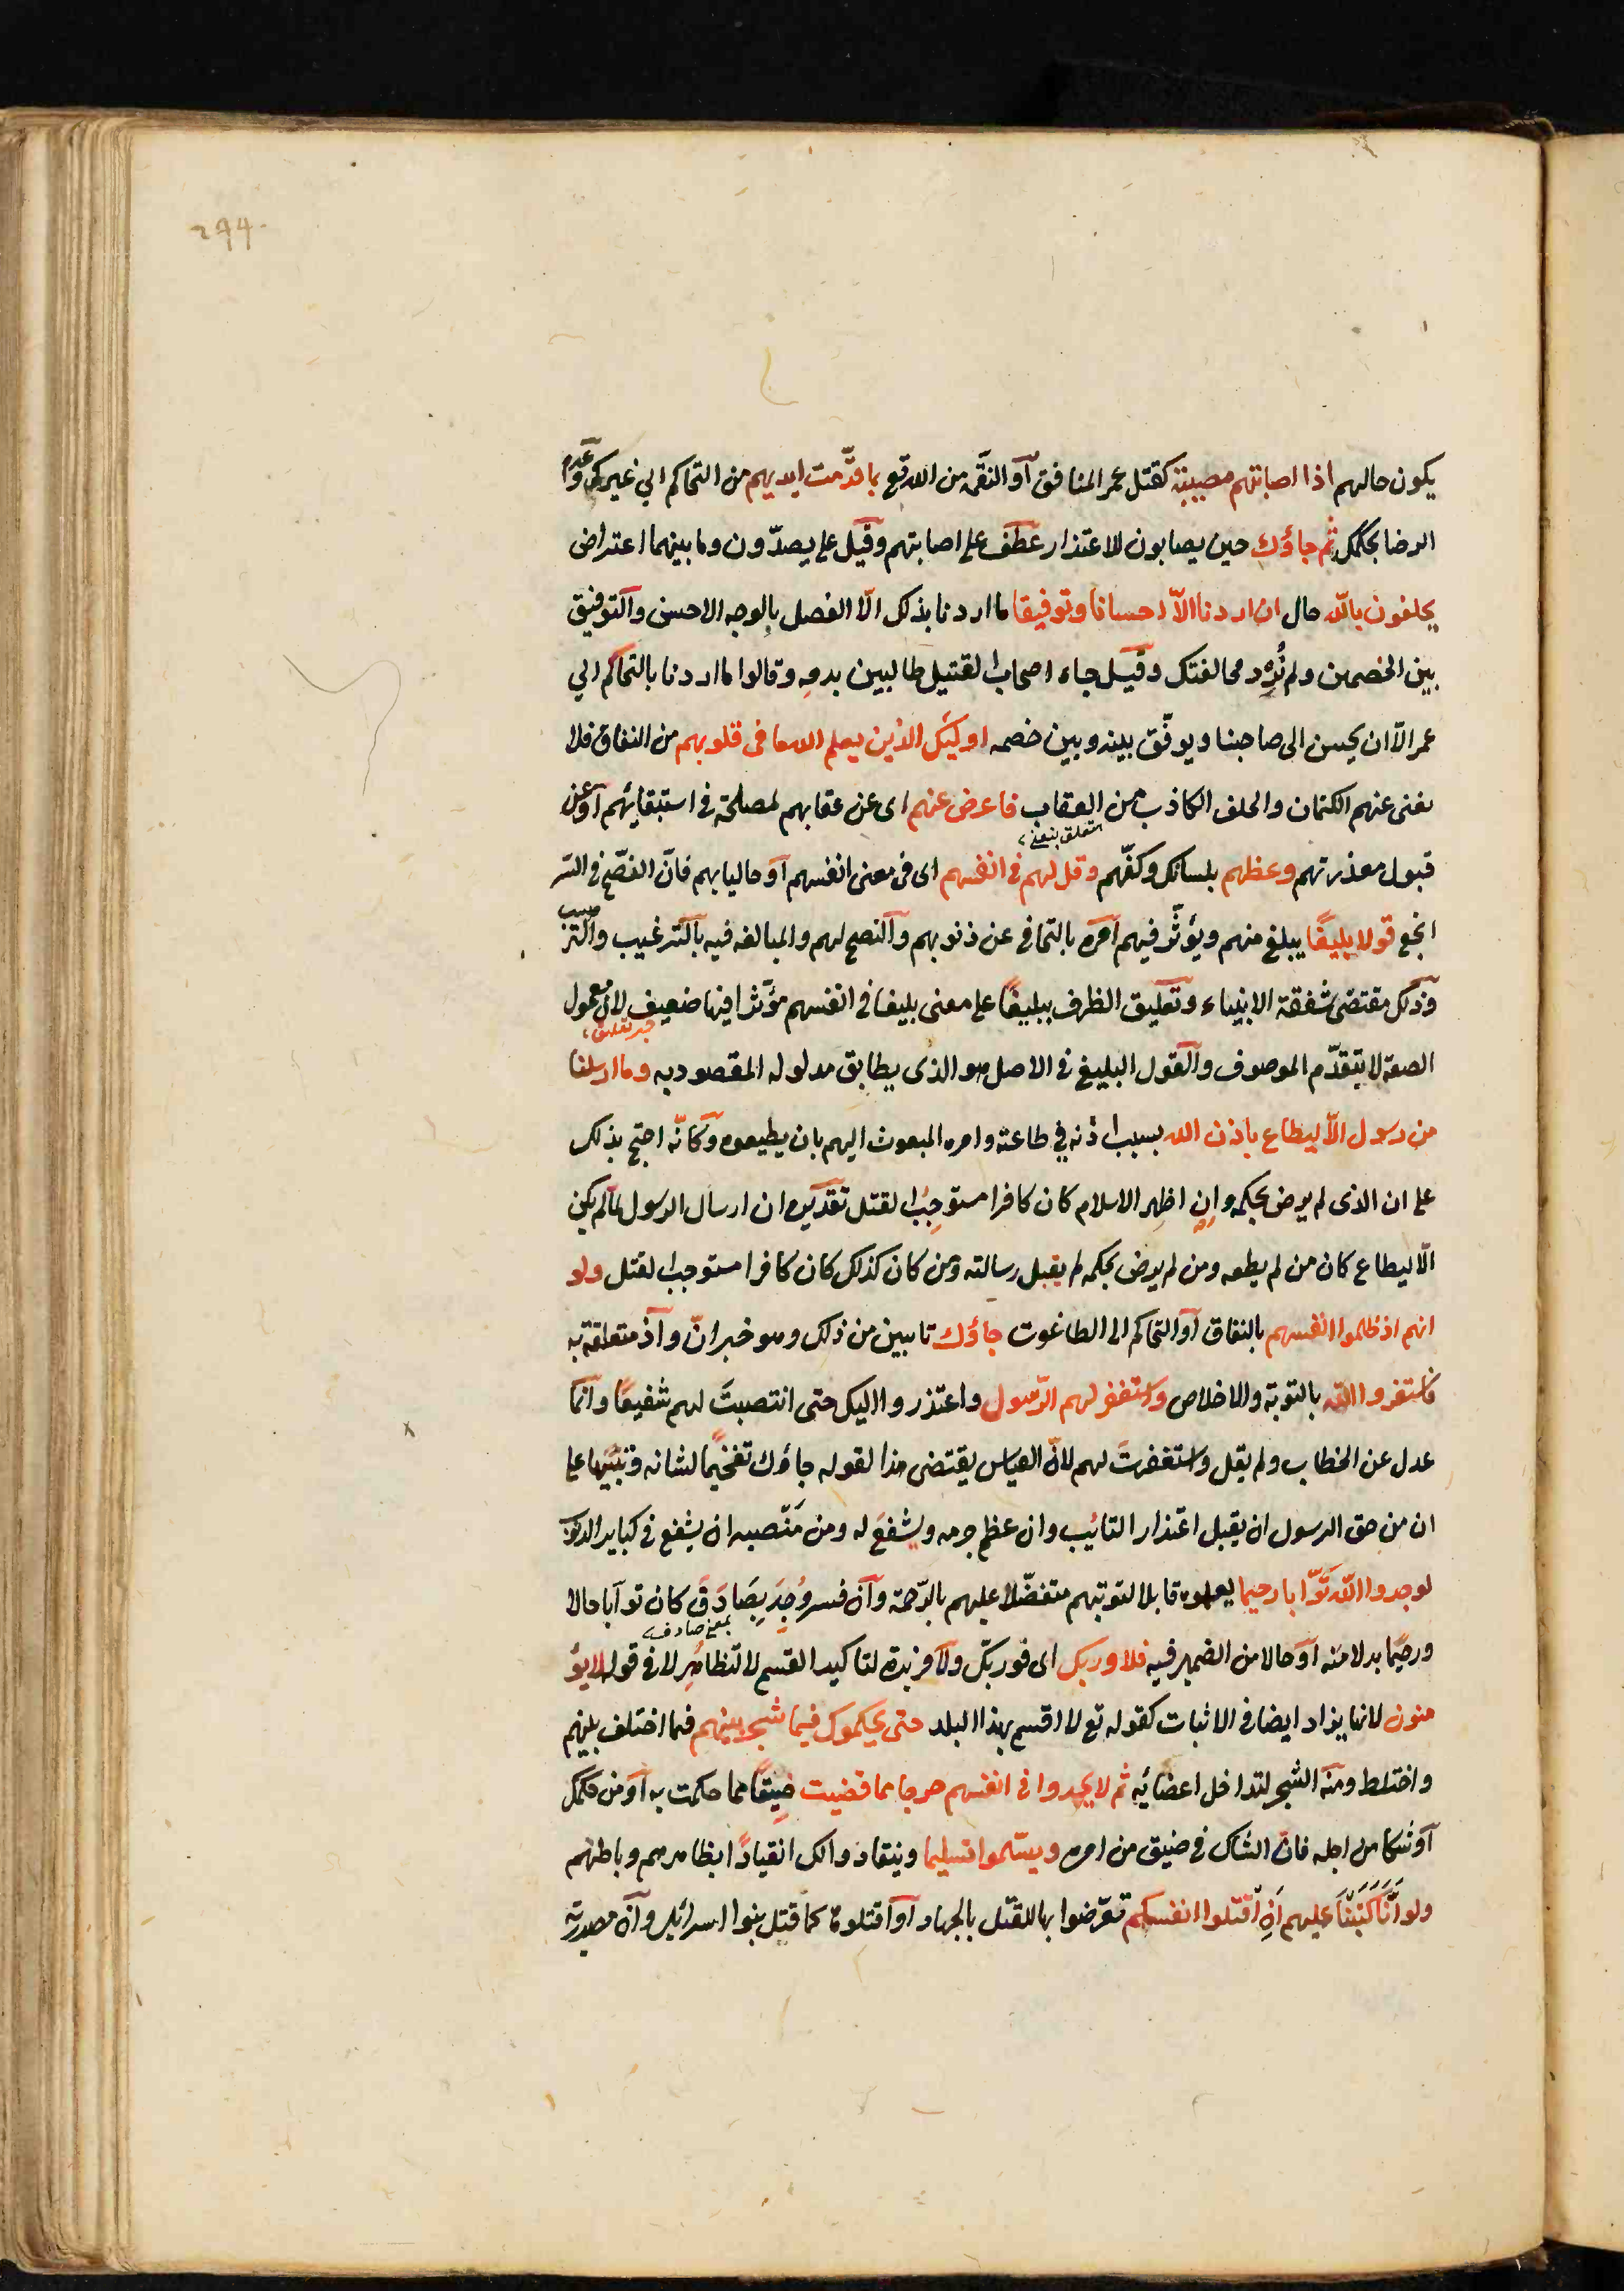 294
يكون حالهم اذا اصابتهم مصيبة كقتل عمر المنافق او النقمة من الله تع بما قدّمت ايديهم من التحاكم الي غيرك وعدم
الرضا بحكمك ثم جاؤك حين يصابون للاعتذار عطف على اصابتهم وقيل على يصدّون وما بينهما اعتراض
يحلفون بالله حال ان اردنا الّا احسانا وتوفيقا ما اردنا بذلك الّا الفصل بالوجه الاحسن والتوفيق
بين الخصمين ولم نُرِد مخالفتك وقيل جاء اصحاب القتيل طالبين بدمه وقالوا ما اردنا بالتحاكم الي
عمر الّا ان يحسن الى صاحبنا ويوفّق بينه وبين خصمه اولئك الذين يعلم الله ما فى قلوبهم من النفاق فلا
يغنى عنهم الكتمان والحلف الكاذب من العقاب فاعرض عنهم اى عن عقابهم لمصلحة فى استبقائهم او عن
متعلق بيغنى
قبول معذرتهم وعظهم بلسانك وكفّهم وقل لهم فى انفسهم اى فى معنى انفسهم او خاليا بهم فانّ النصح فى السّر
انجع قولا بليغًا يبلغ منهم ويؤثّر فيهم امره بالتجافى عن ذنوبهم والنصح لهم والمبالغه فيه بالترغيب والترهيب
وذلك مقتضى شفقة الانبياء وتعليق الظرف ببليغًا على معنى بليغا فى انفسهم مؤثرا فيها ضعيف لان معمول
خبر تعليق
الصفة لا يتقدّم الموصوف والقول البليغ فى الاصل هو الذى يطابق مدلوله المقصود به وما ارسلنا
من رسول الّا ليطاع باذن الله بسبب اذنه في طاعته وامره المبعوث اليهم بان يطيعوه وكانّه احتج بذلك
على ان الذى لم يرض بحكمه وان اظهر الاسلام كان كافرا مستوجب القتل تقديره ان ارسال الرسول لما لم يكن
الّا ليطاع كان من لم يطعه ومن لم يرض بحكمه لم يقبل رسالته ومن كان كذلك كان كافرا مستوجب القتل ولو
انهم اذ ظلموا انفسهم بالنفاق او التحاكم الى الطاغوت جاؤك تايبين من ذلك وهو خبر انّ واذ متعلقة به
فاستغفروا الله بالتوبة والاخلاص واستغفر لهم الرّسول واعتذروا اليك حتى انتصبتَ لهم شفيعًا وانّما
عدل عن الخطاب ولم يقل واستغفرتَ لهم لانّ القياس يقتضى هذا لقوله جاؤك تفخيمًا لشانه وتنبيها على
ان من حق الرسول ان يقبل اعتذار التائب وان عظم جرمه ويشفع له ومن مَنْصبه ان يشفع فى كباير الذنوب
لوجدوا الله توّابا رحيما لعلموه قابلا لتوبتهم متفضّلا عليهم بالرّحمة وان فسر وُجِدَ بِصَادَقَ كان توابا حالا
بمعنى صادف
ورحيمًا بدلا منه او حالا من الضمير فيه فلا وربك اى فوربّك ولا مزيدة لتاكيد القسم لا لتظاهُر لا فى قوله لا يؤ
منون لانها يزاد ايضا فى الاثبات كقوله تع لا اقسم بهذا البلد حتى يحكموك فيما شجر بينهم فيما اختلف بينهم
واختلط ومنه الشجر لتداخل اعضائه ثم لا يجدوا فى انفسهم حرجا مما قضيت ضيقًا مما حكمت به او من حكمك
او شكا من اجله فانّ الشاك فى ضيق من امره ويسلّموا تسليما وينقادوا لك انقيادًا بظاهرهم وباطنهم
ولو اَنّا كَتَبْنَا عليهم اَنِ اُقْتُلوا انفسكم تعرّضوا بها للقتل بالجهاد او اقتلوها كما قتل بنوا اسرائل وان مصدريّة